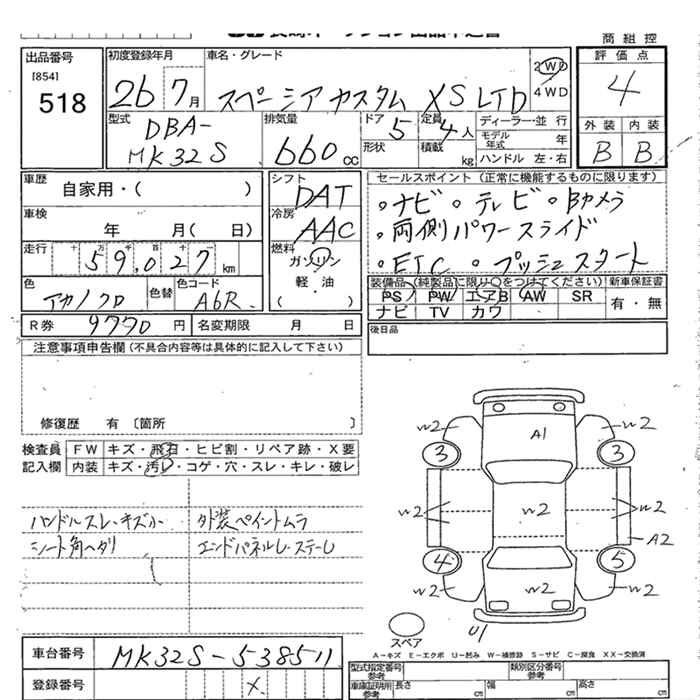 商 組 控
出品番号
[854]
518
初度登録年月
26 7月
車名・グレード
スペーシアカスタム XS LTD
2WD
4WD
評価点
4
外装 内装
B B
型式
DBA-
MK32S
排気量
660cc
ドア 5
形状
定員 4人
積載 kg
ディーラー・並行
モデル年式 年
ハンドル 左・右
車歴
自家用・( )
車検
年 月( 日)
走行
十 万 千 百 十 一
59,027km
色
アカ/クロ
色替
色コード
A6R
シフト
DAT
冷房
AAC
燃料
ガソリン
軽・油
( )
セールスポイント (正常に機能するものに限ります)
。ナビ。テレビ。Bカメラ
。両側パワースライド
。ETC。プッシュスタート
装備品(純製品に限り〇をつけてください) 新車保証書
PS PW エアB AW SR
ナビ TV カワ
有・無
R券 9770円 名変期限 月 日
後日品
注意事項申告欄(不具合内容等は具体的に記入して下さい)
修復歴 有〔箇所 〕
検査員
記入欄
FW キズ・飛石・ヒビ割・リペア跡・X要
内装 キズ・汚レ・コゲ・穴・スレ・キレ・破レ
ハンドルスレ・キズ小 外装ペイントムラ
シート角ヘタリ エンドパネルU・ステーU
w2 A1 w2
3 3
w2 w2 w2
A2
4 5
w2 w2 w2
U1
スペア
A－キズ E－エクボ U－凹み W－補修跡 S－サビ C－腐食 XX－交換済
車台番号 MK32S-538511
登録番号 X
型式指定番号
参考
類別区分番号
参考
車庫証明用
参考
長さ cm 幅 cm 高さ cm